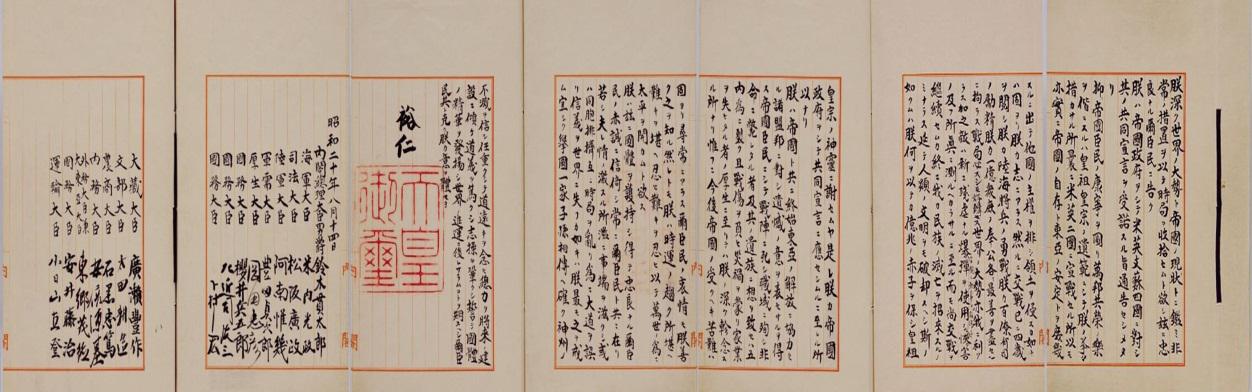 朕深ク世界ノ大勢ト帝國ノ現狀トニ鑑ミ非
常ノ措置ヲ以テ時局ヲ收拾セムト欲シ茲ニ忠
良ナル爾臣民ニ告ク
朕ハ帝國政府ヲシテ米英支蘇四國ニ對シ
其ノ共同宣言ヲ受諾スル旨通告セシメタ
リ
抑〻帝國臣民ノ康寧ヲ圖リ萬邦共榮ノ樂
ヲ偕ニスルハ皇祖皇宗ノ遺範ニシテ朕ノ拳々
措カサル所曩ニ米英二國ニ宣戰セル所以モ
亦實ニ帝國ノ自存ト東亞ノ安定トヲ庶幾
スルニ出テ他國ノ主權ヲ排シ領土ヲ侵スカ如キ
ハ固ヨリ朕カ志ニアラス然ルニ交戰已ニ四歲
ヲ閱シ朕カ陸海將兵ノ勇戰朕カ百僚有司
ノ勵精朕カ一億衆庶ノ奉公各〻最善ヲ盡セル
ニ拘ラス戰局必スシモ好轉セス世界ノ大勢亦我ニ利ア
ラス加之敵ハ新ニ殘虐ナル爆彈ヲ使用シテ頻ニ無辜ヲ殺傷シ慘害
ノ及フ所眞ニ測ルヘカラサルニ至ル而モ尚交戰ヲ
繼續セムカ終ニ我カ民族ノ滅亡ヲ招來スルノ
ミナラス延テ人類ノ文明ヲモ破却スヘシ斯ノ
如クムハ朕何ヲ以テカ億兆ノ赤子ヲ保シ皇祖
皇宗ノ神靈ニ謝セムヤ是レ朕カ帝國
政府ヲシテ共同宣言ニ應セシムルニ至レル所
以ナリ
朕ハ帝國ト共ニ終始東亞ノ解放ニ協力セ
ル諸盟邦ニ對シ遺憾ノ意ヲ表セサルヲ得
ス帝國臣民ニシテ戰陣ニ死シ職域ニ殉シ非
命ニ斃レタル者及其ノ遺族ニ想ヲ致セハ五
內爲ニ裂ク且戰傷ヲ負ヒ災禍ヲ蒙リ家業
ヲ失ヒタル者ノ厚生ニ至リテハ朕ノ深ク軫念ス
ル所ナリ惟フニ今後帝國ノ受クヘキ苦難ハ
固ヨリ尋常ニアラス爾臣民ノ衷情モ朕善
ク之ヲ知ル然レトモ朕ハ時運ノ趨ク所堪ヘ
難キヲ堪ヘ忍ヒ難キヲ忍ヒ以テ萬世ノ爲ニ
太平ヲ開カムト欲ス
朕ハ茲ニ國體ヲ護持シ得テ忠良ナル爾臣
民ノ赤誠ニ信倚シ常ニ爾臣民ト共ニ在リ
若シ夫レ情ノ激スル所濫ニ事端ヲ滋クシ或
ハ同胞排擠互ニ時局ヲ亂リ爲ニ大道ヲ誤
リ信義ヲ世界ニ失フカ如キハ朕最モ之ヲ戒
ム宜シク擧國一家子孫相傳ヘ確ク神州ノ
不滅ヲ信シ任重クシテ道遠キヲ念ヒ總力ヲ將來ノ建
設ニ傾ケ道義ヲ篤クシ志操ヲ鞏クシ誓テ國體
ノ精華ヲ發揚シ世界ノ進運ニ後レサラムコトヲ期スヘシ爾臣
民其レ克ク朕カ意ヲ體セヨ
裕仁
天皇御璽
昭和二十年八月十四日
內閣總理大臣男爵 鈴木貫太郎
海軍大臣 米內光政
司法大臣 松阪廣政
陸軍大臣 阿南惟幾
軍需大臣 豊田貞次郎
厚生大臣 岡田忠彦
國務大臣 櫻井兵五郎
國務大臣 左近司政三
國務大臣 下村宏
大藏大臣 廣瀨豐作
文部大臣 太田耕造
農商大臣 石黑忠篤
內務大臣 安倍源基
外務大臣兼大東亞大臣 東鄕茂德
國務大臣 安井藤治
運輸大臣 小日山直登
內閣